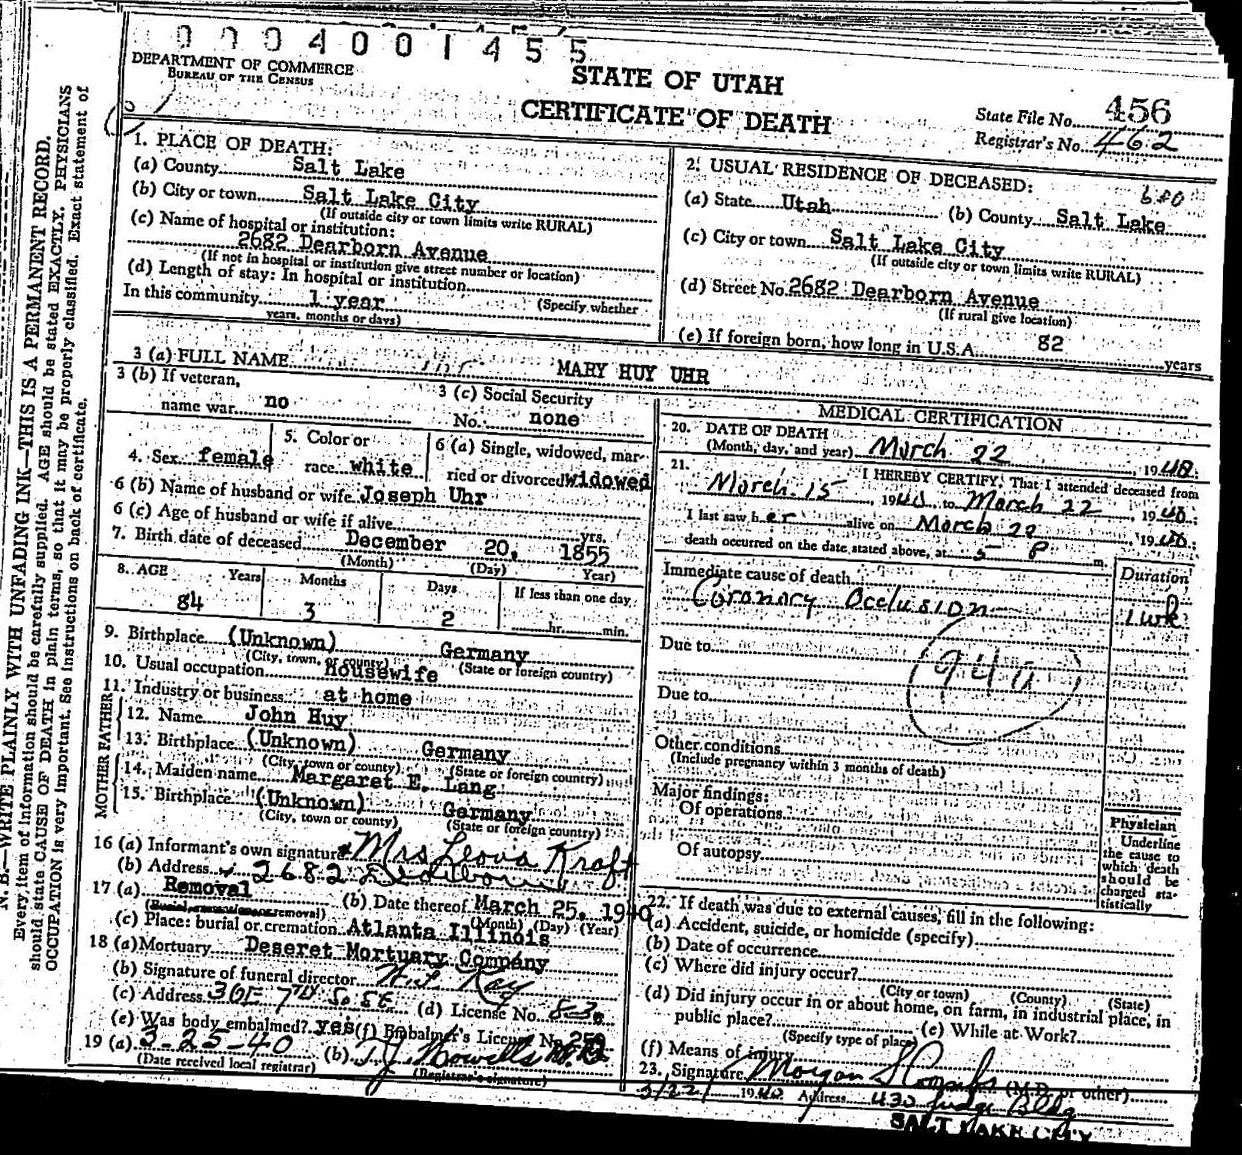 0004001455
DEPARTMENT OF COMMERCE
BUREAU OF THE CENSUS
STATE OF UTAH
CERTIFICATE OF DEATH
State File No. 456
Registrar's No. 462
N. B.—WRITE PLAINLY WITH UNFADING INK—THIS IS A PERMANENT RECORD.
Every item of information should be carefully supplied. AGE should be stated EXACTLY. PHYSICIANS
should state CAUSE OF DEATH in plain terms, so that it may be properly classified. Exact statement of
OCCUPATION is very important. See instructions on back of certificate.
1. PLACE OF DEATH:
(a) County Salt Lake
(b) City or town Salt Lake City
(If outside city or town limits write RURAL)
(c) Name of hospital or institution:
2682 Dearborn Avenue
(If not in hospital or institution give street number or location)
(d) Length of stay: In hospital or institution
In this community 1 year (Specify whether
years, months or days)
2. USUAL RESIDENCE OF DECEASED:
680
(a) State Utah (b) County Salt Lake
(c) City or town Salt Lake City
(If outside city or town limits write RURAL)
(d) Street No. 2682 Dearborn Avenue
(If rural give location)
(e) If foreign born, how long in U.S.A. 82 years
3 (a) FULL NAME MARY HUY UHR
3 (b) If veteran,
name war no
3 (c) Social Security
No. none
4. Sex female
5. Color or
race white
6 (a) Single, widowed, mar-
ried or divorced widowed
6 (b) Name of husband or wife Joseph Uhr
6 (c) Age of husband or wife if alive yrs.
7. Birth date of deceased December 20, 1855
(Month) (Day) Year)
8. AGE Years Months Days If less than one day
84 3 2 hr. min.
9. Birthplace (Unknown) Germany
(City, town, or county) (State or foreign country)
10. Usual occupation Housewife
11. Industry or business at home
FATHER
12. Name John Huy
13. Birthplace (Unknown) Germany
(City, town or county) (State or foreign country)
MOTHER
14. Maiden name Margaret E. Lang
15. Birthplace (Unknown) Germany
(City, town or county) (State or foreign country)
16 (a) Informant's own signature Mrs Leova Kraft
(b) Address 2682 Dearborn
17 (a) Removal (b) Date thereof March 25, 1940
(Burial, cremation or removal) (Month) (Day) (Year)
(c) Place: burial or cremation Atlanta Illinois
18 (a) Mortuary Deseret Mortuary Company
(b) Signature of funeral director
(c) Address 36 E 7th So St (d) License No.
(e) Was body embalmed? yes (f) Embalmer's License No.
19 (a) 3-25-40 (b)
(Date received local registrar) (Registrar's signature)
MEDICAL CERTIFICATION
20. DATE OF DEATH
(Month, day, and year) March 22, 1940.
21. I HEREBY CERTIFY, That I attended deceased from
March 15, 1940 to March 22, 1940.;
I last saw her alive on March 22, 1940.;
death occurred on the date stated above, at 5 P m.
Immediate cause of death Duration
Coronary Occlusion 1 wk
Due to
Due to
Other conditions
(Include pregnancy within 3 months of death)
Major findings:
Of operations
Of autopsy
Physician
Underline
the cause to
which death
should be
charged sta-
tistically
22. If death was due to external causes, fill in the following:
(a) Accident, suicide, or homicide (specify)
(b) Date of occurrence
(c) Where did injury occur?
(City or town) (County) (State)
(d) Did injury occur in or about home, on farm, in industrial place, in
public place? (e) While at Work?
(Specify type of place)
(f) Means of injury
23. Signature Morgan S Coombs (M.D. or other)
3/22/1940 Address 430 Judge Bldg
SALT LAKE CITY